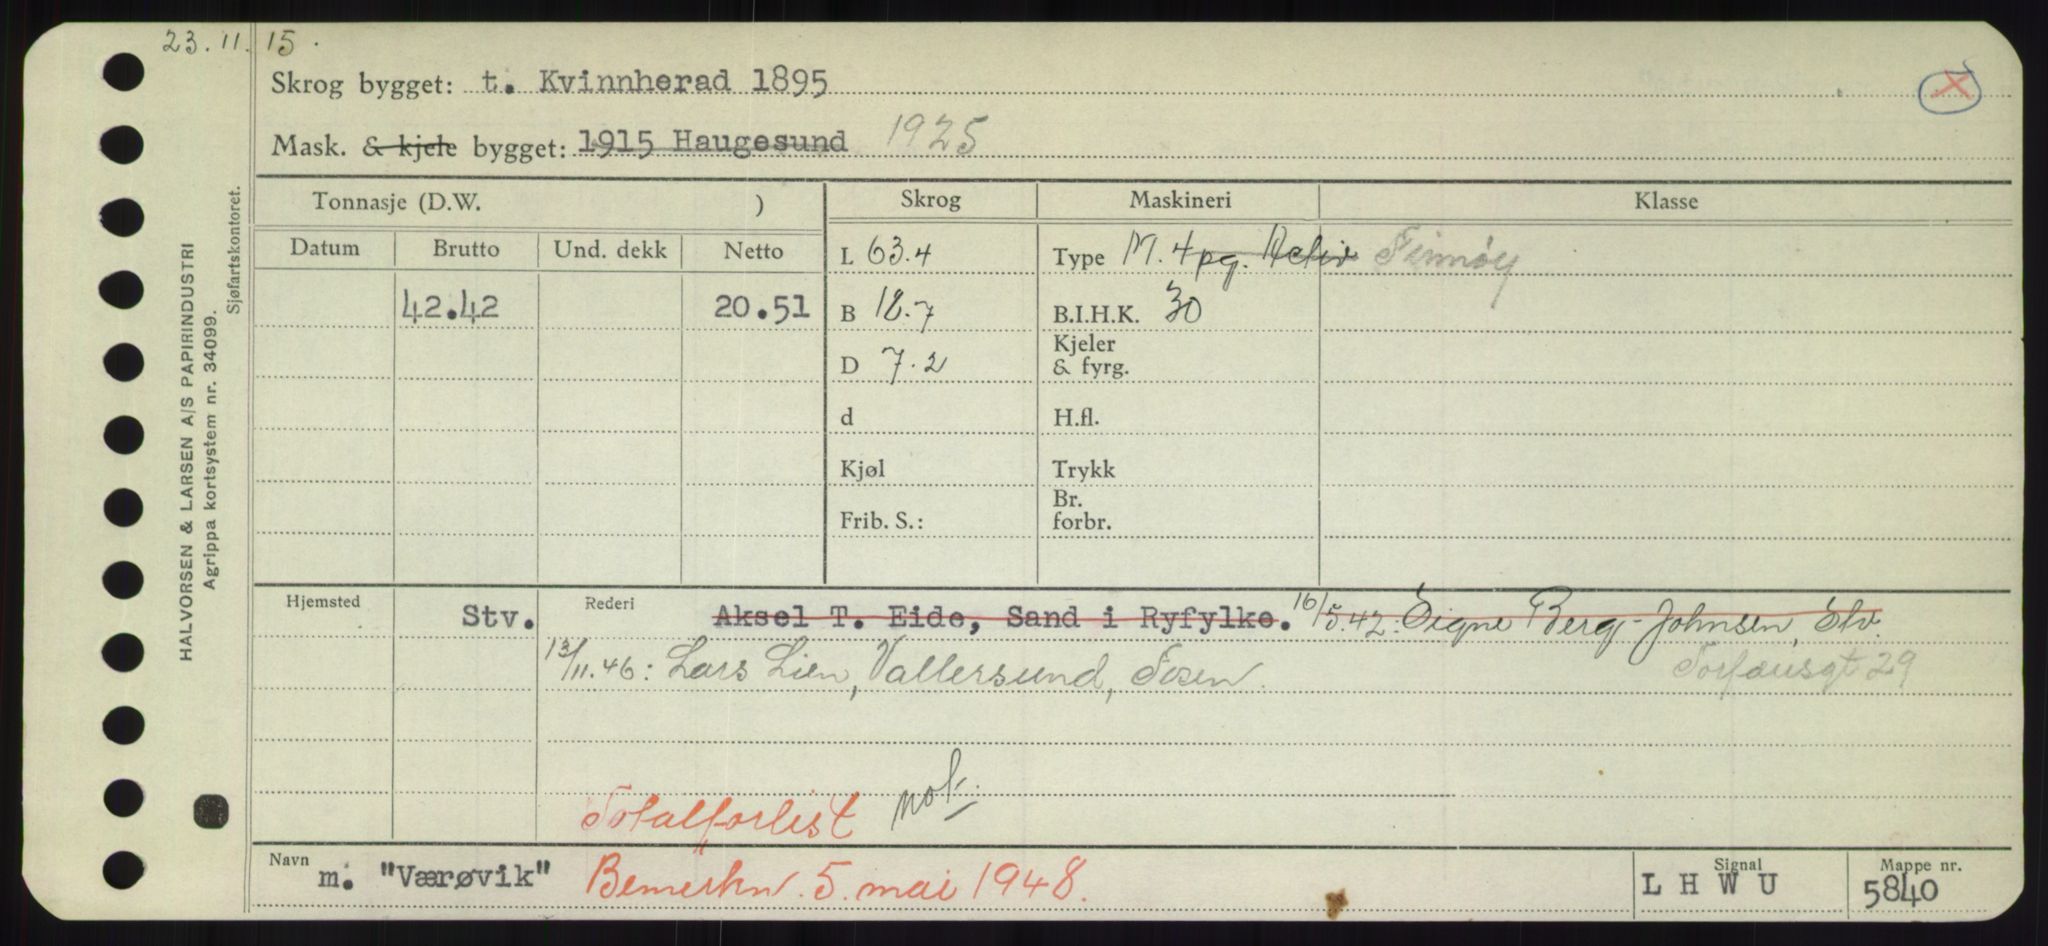 23.11.15.
Skrog bygget: t. Kvinnherad 1895
Mask. & kjele bygget: 1915 Haugesund 1925
Tonnasje (D.W. ) Skrog Maskineri Klasse
Datum Brutto Und. dekk Netto L 63.4 Type M. 4 pg. Finnøy
42.42 20.51 B 18.7 B.I.H.K. 30
D 7.2 Kjeler & fyrg.
d H.fl.
Kjøl Trykk
Frib. S.: Br. forbr.
Hjemsted Stv. Rederi Aksel T. Eide, Sand i Ryfylke. 16/5.42: Signe Berg-Johnsen, Stv.
13/11.46: Lars Lien, Vallersund, Fosen.
Totalforlist
Navn m. "Værøvik" Bemerkn. 5. mai 1948. Signal L H W U Mappe nr. 5840
HALVORSEN & LARSEN A/S PAPIRINDUSTRI
Agrippa kortsystem nr. 34099.
Sjøfartskontoret.